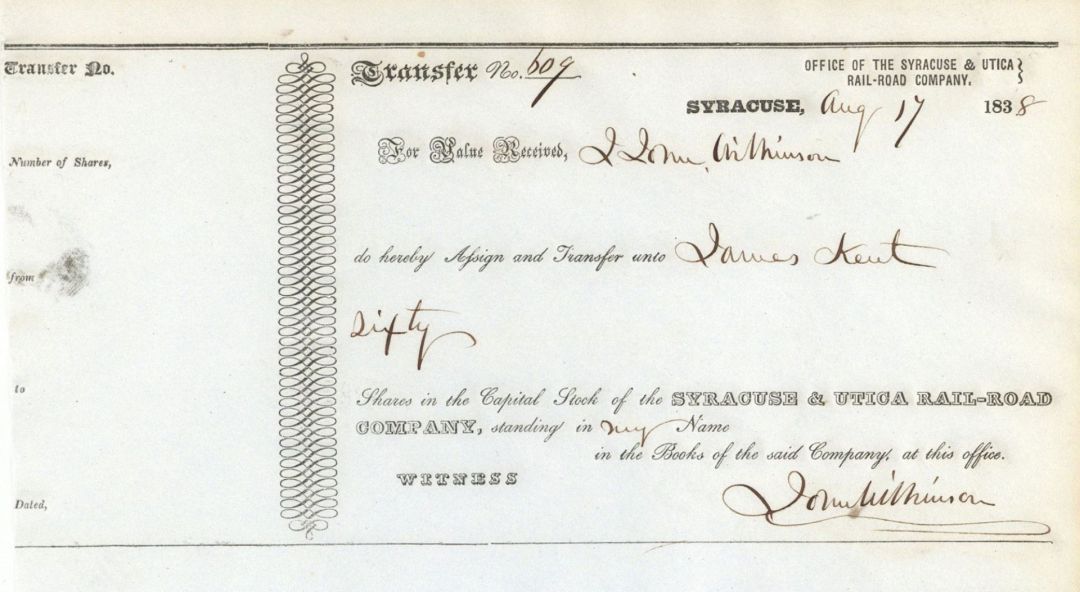 Transfer No.
Number of Shares,
from
to
Dated,
Transfer No. 609
OFFICE OF THE SYRACUSE & UTICA
RAIL-ROAD COMPANY.
SYRACUSE, Aug 17 1838
For Value Received, I John Wilkinson
do hereby Assign and Transfer unto James Kent
Sixty
Shares in the Capital Stock of the SYRACUSE & UTICA RAIL-ROAD
COMPANY, standing in my Name
in the Books of the said Company, at this office.
WITNESS
John Wilkinson